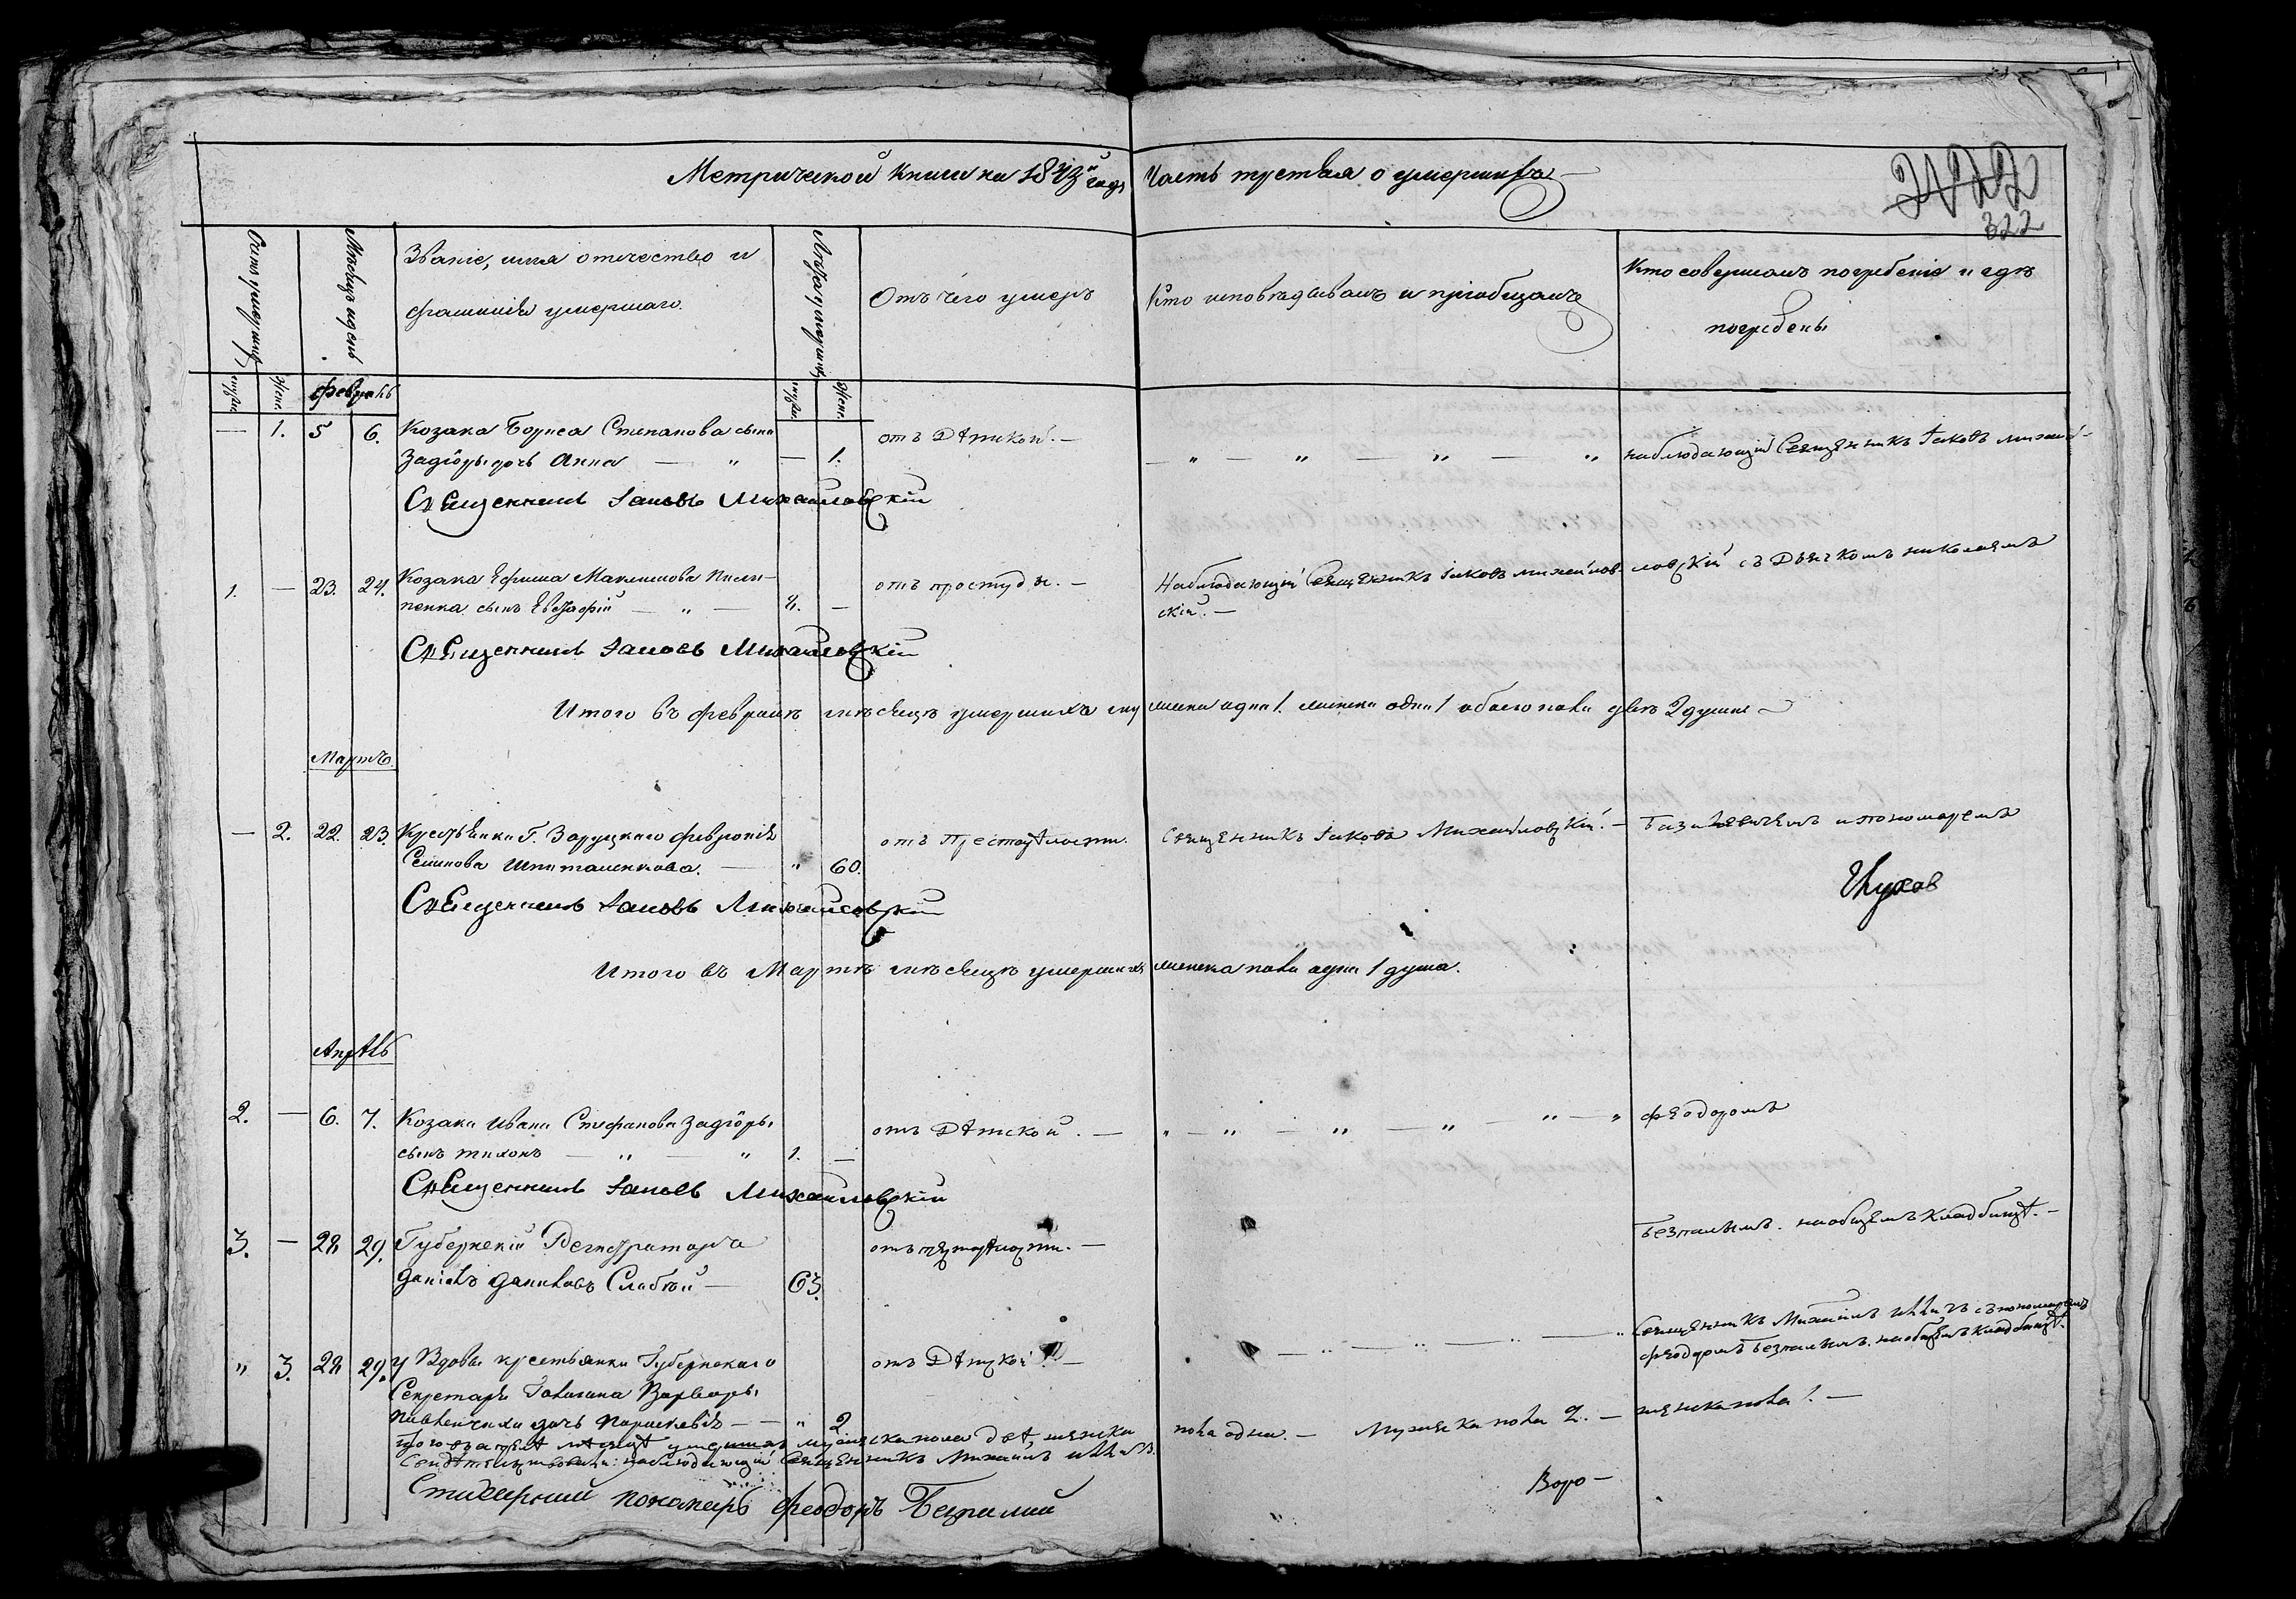 Метрической книги на 1843й годъ Часть третья о умершихъ
322
Счетъ умершихъ
Мѣсяцъ и день
Званіе, имя отечество и
фамилія умершаго.
Лѣта умершихъ
Отъ чего умеръ
Кто исповѣдывалъ и пріобщалъ
Кто совершалъ погребеніе и гдѣ
погребены
мужс.
женс.
февраль
мужс.
женс.
— 1. 5 6. Козака Бориса Степанова сына — 1. отъ Дѣтской. —
Задіоры дочь Анна — „ —
— „ — „ — „ — „ наблюдающій Священникъ Іаковъ Михай-
Священникъ Іаковъ Михайловскій
1. — 23. 24. Козака Ефима Максимова Пили- отъ простуды. — Наблюдающій Священникъ Іаковъ Михайлов- ловскій съ Дьячкомъ Николаемъ
пенка сынъ Евстафій — „ — 4. — скій. —
Священникъ Іаковъ Михайловскій
Итого въ февралѣ мѣсяцѣ умершихъ мужеска одна 1. женска одна 1 обоего пола двѣ 2 души
Мартъ.
— 2. 22. 23. Крестьянка Г. Заруцкаго февронія отъ Престарѣлости. Священникъ Іаковъ Михайловскій. — Базилевичемъ и пономаремъ
Семенова Шпиталенкова. — „ 60.
Священникъ Іаковъ Михайловскій
Итого въ Мартѣ мѣсяцѣ умершихъ женска пола одна 1 душа.
Апрѣль
2. — 6. 7. Козака Ивана Стефанова Задіоры отъ Дѣтской. — „ — „ — „ — „ — „ — „ феодоромъ
сынъ Тихонъ — „ — „ 1. —
Священникъ Іаковъ Михайловскій
3. — 28 29. Губернскій Регистраторъ отъ престарѣлости. — Безпалымъ. на общемъ кладбищѣ. —
Даніилъ Даниловъ Слабкій — 63.
Священникъ Михаилъ съ пономаремъ
„ 3. 28 29. У Вдовы крестьянки Губернскаго отъ Дѣтской. — — „ — „ — „ — „ феодоромъ Безпалымъ. на общемъ кладбищѣ.
Секретаря Варвары
дочь Параскевія — — „ 2
Итого въ апрѣлѣ мѣсяцѣ умершихъ мужеска пола двѣ, женска пола одна. — Мужеска пола 2. — женска пола 1. —
Свидѣтельствовали: наблюдающій Священникъ Михаилъ
Стихарный пономарь Феодоръ Безпалый
Воро —